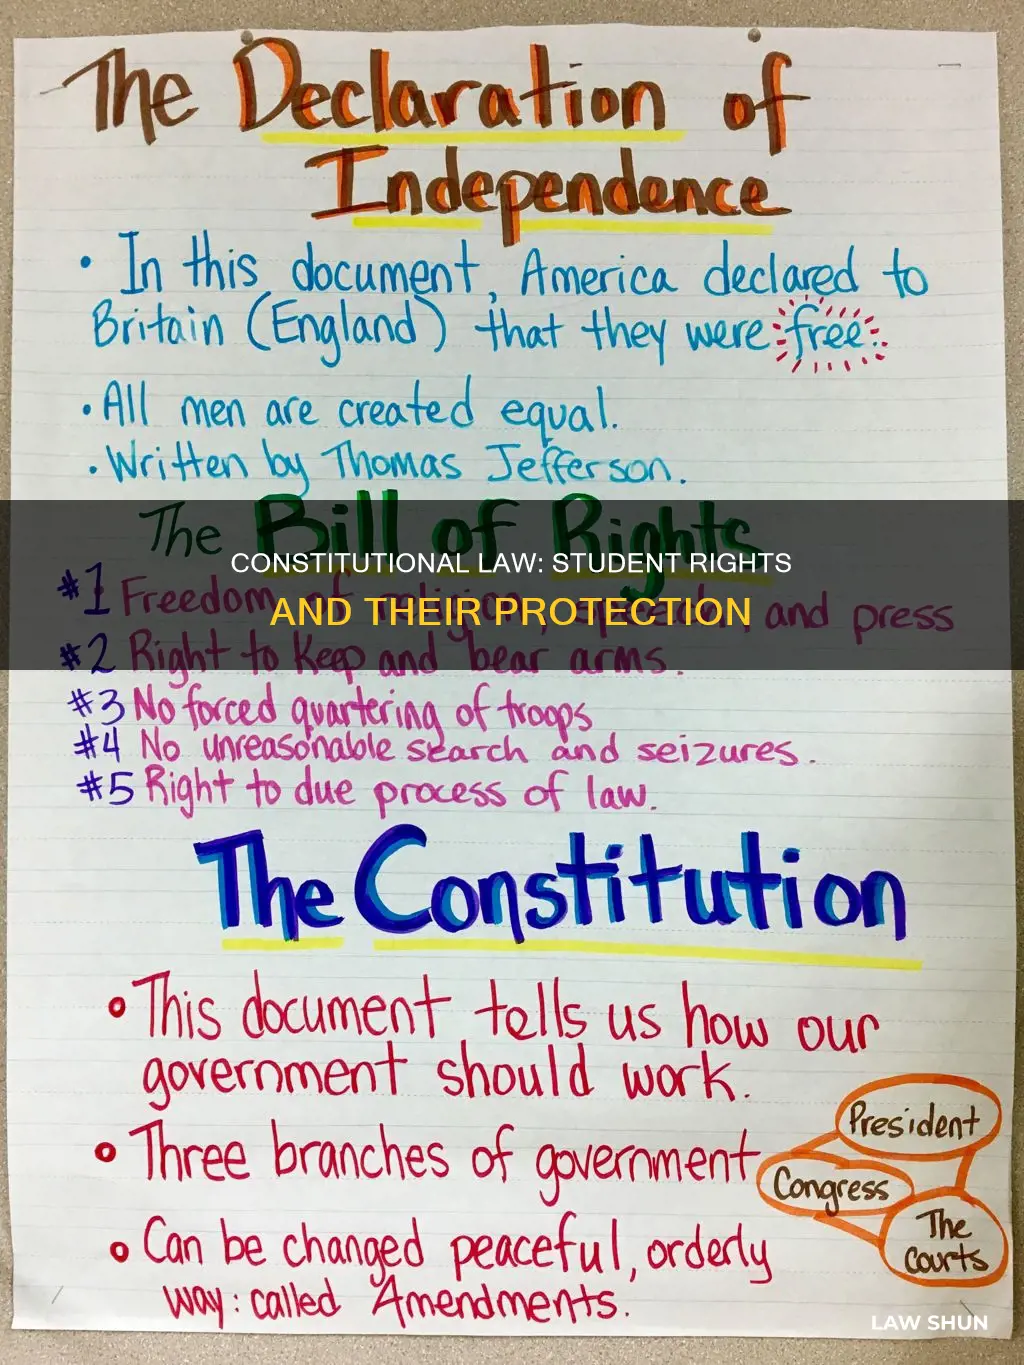 The Declaration of
Independence
• In this document, America declared to
Britain (England) that they were free.
• All men are created equal.
• Written by Thomas Jefferson.
The Bill of Rights
CONSTITUTIONAL LAW: STUDENT RIGHTS
#1 Freedom of religion, speech, and press
AND THEIR PROTECTION
#2 Right to keep and bear arms.
#3 No forced quartering of troops
#4 No unreasonable search and seizures.
#5 Right to due process of law.
The Constitution
• This document tells us how our
government should work.
• Three branches of government
President
Congress
The
Courts
• Can be changed peaceful, orderly
way: called Amendments.
LAW SHUN